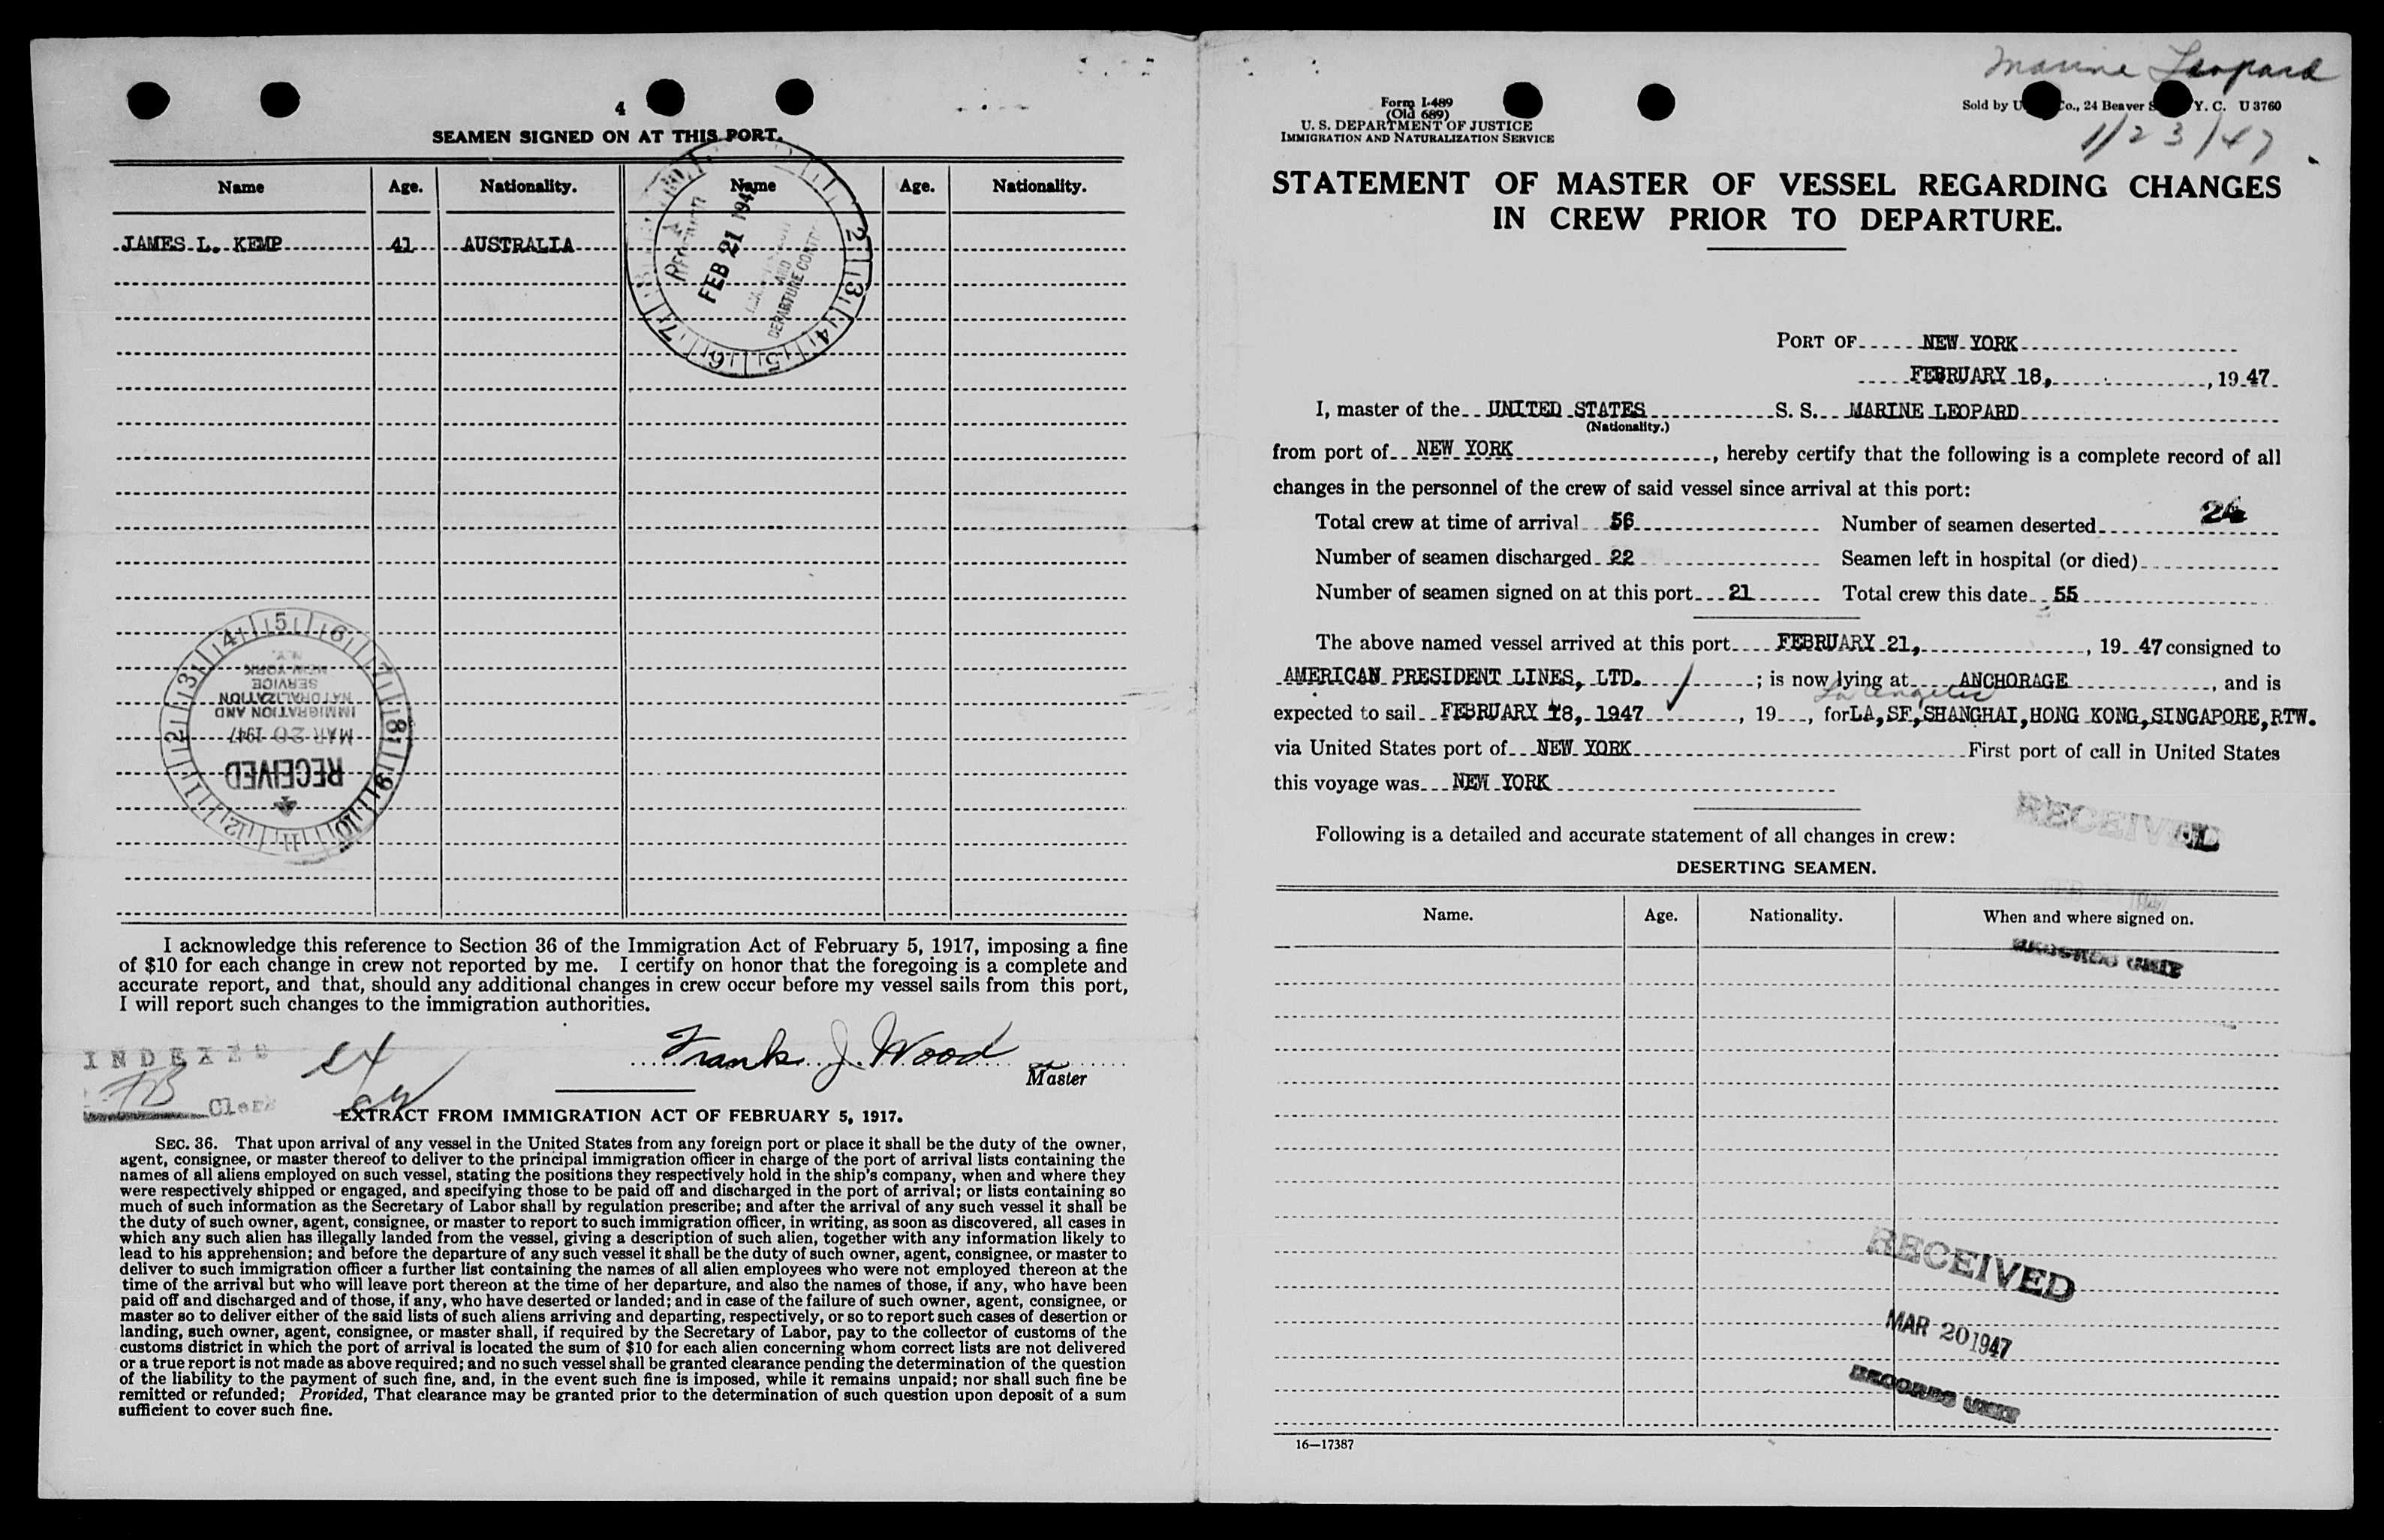 4
SEAMEN SIGNED ON AT THIS PORT.
Name Age. Nationality. Name Age. Nationality.
JAMES L. KEMP 41 AUSTRALIA
FEB 21 194
AND
DEPARTURE CONTR
2 3 4 5 6 7
4 5 6 7 8 9 10 11 12 1 2 3
N.Y.
NEW YORK
SERVICE
NATURALIZATION
IMMIGRATION AND
MAR 20 1947
RECEIVED
I acknowledge this reference to Section 36 of the Immigration Act of February 5, 1917, imposing a fine
of $10 for each change in crew not reported by me. I certify on honor that the foregoing is a complete and
accurate report, and that, should any additional changes in crew occur before my vessel sails from this port,
I will report such changes to the immigration authorities.
INDEXED
Frank J. Wood
Master
Clerk
EXTRACT FROM IMMIGRATION ACT OF FEBRUARY 5, 1917.
SEC. 36. That upon arrival of any vessel in the United States from any foreign port or place it shall be the duty of the owner,
agent, consignee, or master thereof to deliver to the principal immigration officer in charge of the port of arrival lists containing the
names of all aliens employed on such vessel, stating the positions they respectively hold in the ship's company, when and where they
were respectively shipped or engaged, and specifying those to be paid off and discharged in the port of arrival; or lists containing so
much of such information as the Secretary of Labor shall by regulation prescribe; and after the arrival of any such vessel it shall be
the duty of such owner, agent, consignee, or master to report to such immigration officer, in writing, as soon as discovered, all cases in
which any such alien has illegally landed from the vessel, giving a description of such alien, together with any information likely to
lead to his apprehension; and before the departure of any such vessel it shall be the duty of such owner, agent, consignee, or master to
deliver to such immigration officer a further list containing the names of all alien employees who were not employed thereon at the
time of the arrival but who will leave port thereon at the time of her departure, and also the names of those, if any, who have been
paid off and discharged and of those, if any, who have deserted or landed; and in case of the failure of such owner, agent, consignee, or
master so to deliver either of the said lists of such aliens arriving and departing, respectively, or so to report such cases of desertion or
landing, such owner, agent, consignee, or master shall, if required by the Secretary of Labor, pay to the collector of customs of the
customs district in which the port of arrival is located the sum of $10 for each alien concerning whom correct lists are not delivered
or a true report is not made as above required; and no such vessel shall be granted clearance pending the determination of the question
of the liability to the payment of such fine, and, in the event such fine is imposed, while it remains unpaid; nor shall such fine be
remitted or refunded; Provided, That clearance may be granted prior to the determination of such question upon deposit of a sum
sufficient to cover such fine.
Marine Leopard
Form I-489
(Old 689)
U. S. DEPARTMENT OF JUSTICE
IMMIGRATION AND NATURALIZATION SERVICE
Sold by U Co., 24 Beaver S Y. C. U 3760
1/23/47
STATEMENT OF MASTER OF VESSEL REGARDING CHANGES
IN CREW PRIOR TO DEPARTURE.
PORT OF NEW YORK
FEBRUARY 18, , 19 47
I, master of the UNITED STATES S. S. MARINE LEOPARD
(Nationality.)
from port of NEW YORK , hereby certify that the following is a complete record of all
changes in the personnel of the crew of said vessel since arrival at this port:
Total crew at time of arrival 56 Number of seamen deserted
Number of seamen discharged 22 Seamen left in hospital (or died)
Number of seamen signed on at this port 21 Total crew this date 55
The above named vessel arrived at this port FEBRUARY 21, , 19 47 consigned to
AMERICAN PRESIDENT LINES, LTD. ; is now lying at ANCHORAGE , and is
Los Angeles
expected to sail FEBRUARY 18, 1947 , 19 , for LA, SF, SHANGHAI, HONG KONG, SINGAPORE, RTW.
via United States port of NEW YORK First port of call in United States
this voyage was NEW YORK
RECEIVED
Following is a detailed and accurate statement of all changes in crew:
DESERTING SEAMEN.
Name. Age. Nationality. When and where signed on.
RECORDS UNIT
RECEIVED
MAR 20 1947
RECORDS UNIT
16—17387